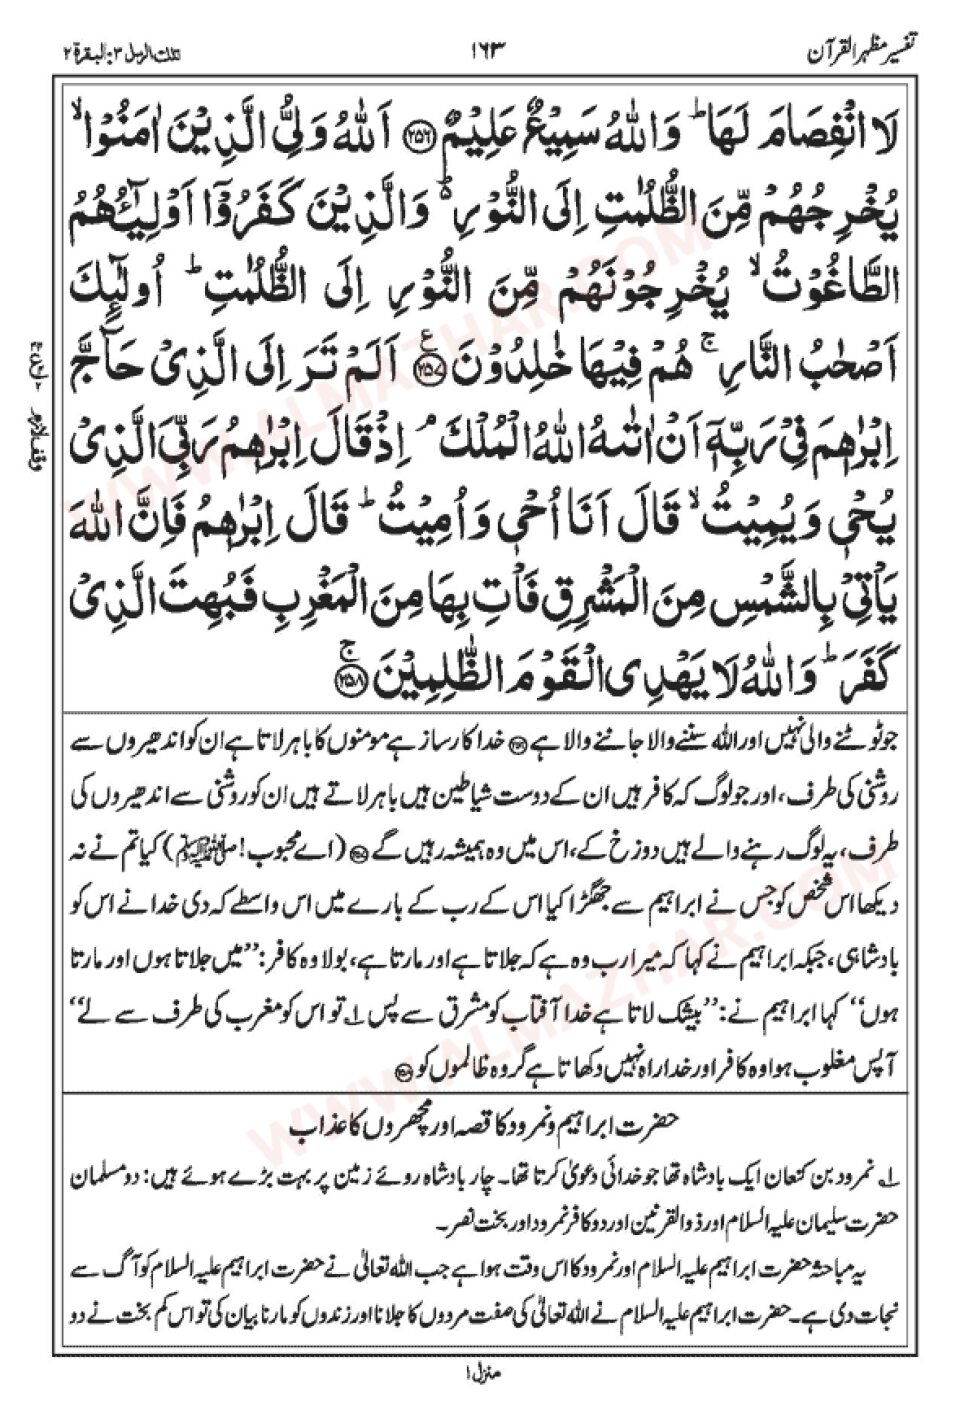 تفسیر مظہر القرآن ۱۶۳ تلک الرسل ۳: البقرۃ ۲
لَا انْفِصَامَ لَهَا ؕ وَاللّٰهُ سَمِیْعٌ عَلِیْمٌ ﴿۲۵۶﴾ اَللّٰهُ وَلِیُّ الَّذِیْنَ اٰمَنُوْا ۙ
یُخْرِجُهُمْ مِّنَ الظُّلُمٰتِ اِلَی النُّوْرِ ؕ۬ وَالَّذِیْنَ كَفَرُوْۤا اَوْلِیٰٓـُٔهُمُ
الطَّاغُوْتُ ۙ یُخْرِجُوْنَهُمْ مِّنَ النُّوْرِ اِلَی الظُّلُمٰتِ ؕ اُولٰٓئِكَ
اَصْحٰبُ النَّارِ ۚ هُمْ فِیْهَا خٰلِدُوْنَ ﴿۲۵۷﴾ ع اَلَمْ تَرَ اِلَی الَّذِیْ حَآجَّ
اِبْرٰهٖمَ فِیْ رَبِّهٖۤ اَنْ اٰتٰىهُ اللّٰهُ الْمُلْكَ ۘ اِذْ قَالَ اِبْرٰهٖمُ رَبِّیَ الَّذِیْ
یُحْیٖ وَیُمِیْتُ ۙ قَالَ اَنَا اُحْیٖ وَاُمِیْتُ ؕ قَالَ اِبْرٰهٖمُ فَاِنَّ اللّٰهَ
یَاْتِیْ بِالشَّمْسِ مِنَ الْمَشْرِقِ فَاْتِ بِهَا مِنَ الْمَغْرِبِ فَبُهِتَ الَّذِیْ
كَفَرَ ؕ وَاللّٰهُ لَا یَهْدِی الْقَوْمَ الظّٰلِمِیْنَ ﴿۲۵۸﴾ ۚ
جو ٹوٹنے والی نہیں اور اللہ سننے والا جاننے والا ہے ﴿۲۵۶﴾ خدا کارساز ہے مومنوں کا باہر لاتا ہے ان کو اندھیروں سے
روشنی کی طرف، اور جو لوگ کہ کافر ہیں ان کے دوست شیاطین ہیں باہر لاتے ہیں ان کو روشنی سے اندھیروں کی
طرف، یہ لوگ رہنے والے ہیں دوزخ کے، اس میں وہ ہمیشہ رہیں گے ﴿۲۵۷﴾ (اے محبوب! ﷺ) کیا تم نے نہ
دیکھا اس شخص کو جس نے ابراہیم سے جھگڑا کیا اس کے رب کے بارے میں اس واسطے کہ دی خدا نے اس کو
بادشاہی، جبکہ ابراہیم نے کہا کہ میرا رب وہ ہے کہ جلاتا ہے اور مارتا ہے، بولا وہ کافر: ’’میں جلاتا ہوں اور مارتا
ہوں‘‘ کہا ابراہیم نے: ’’بیشک لاتا ہے خدا آفتاب کو مشرق سے پس ۱؎ تو اس کو مغرب کی طرف سے لے‘‘
آ پس مغلوب ہوا وہ کافر اور خدا راہ نہیں دکھاتا ہے گروہ ظالموں کو ﴿۲۵۸﴾
حضرت ابراہیم و نمرود کا قصہ اور مچھروں کا عذاب
۱؎ نمرود بن کنعان ایک بادشاہ تھا جو خدائی دعویٰ کرتا تھا۔ چار بادشاہ روئے زمین پر بہت بڑے ہوئے ہیں: دو مسلمان
حضرت سلیمان علیہ السلام اور ذوالقرنین اور دو کافر نمرود اور بخت نصر۔
یہ مباحثہ حضرت ابراہیم علیہ السلام اور نمرود کا اس وقت ہوا ہے جب اللہ تعالیٰ نے حضرت ابراہیم علیہ السلام کو آگ سے
نجات دی ہے۔ حضرت ابراہیم علیہ السلام نے اللہ تعالیٰ کی صفت مردوں کا جلانا اور زندوں کو مارنا بیان کی تو اس کم بخت نے دو
منزل ۱
WWW.ALMAZHAR.COM
WWW.ALMAZHAR.COM